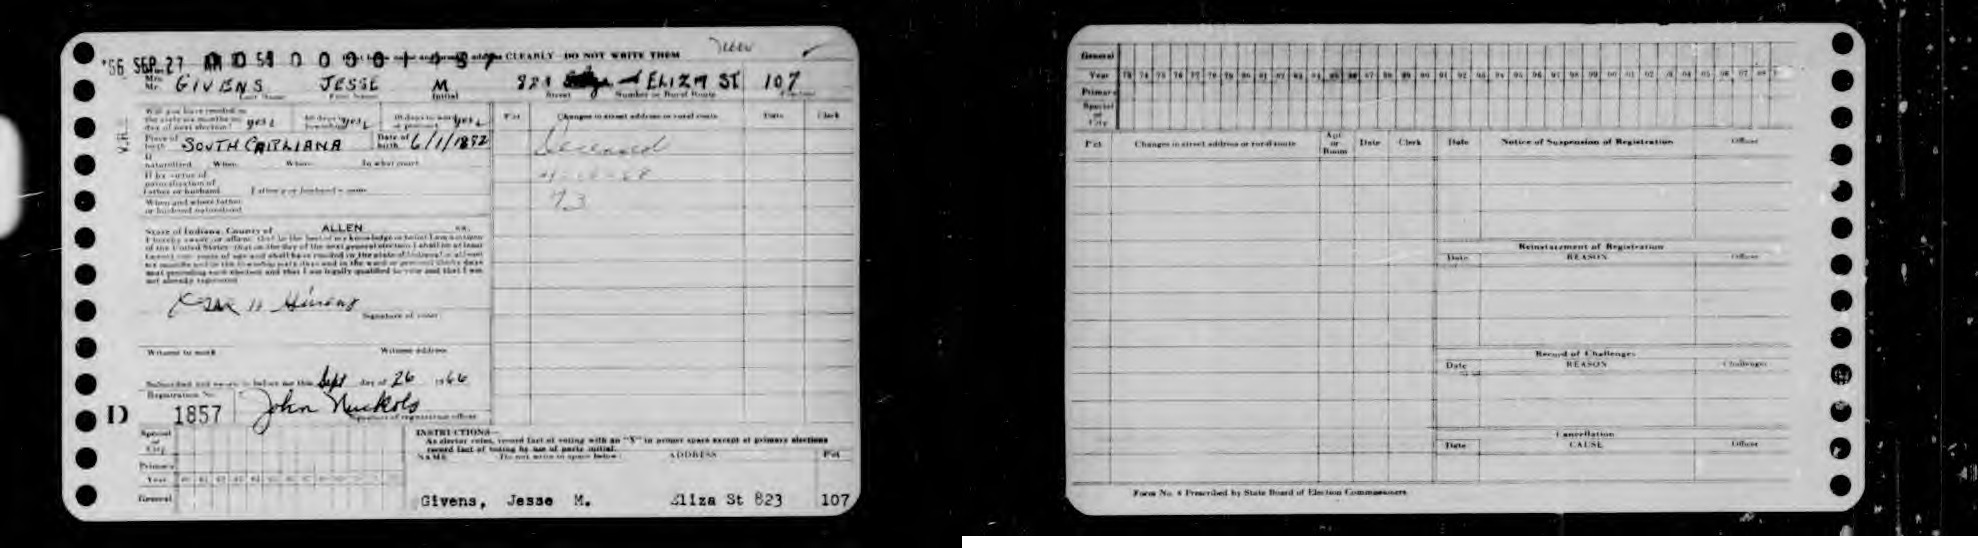 '56 SEP 27 AM 10 54 0 0 0 0 1 CLEARLY DO NOT WRITE THEM
Mrs.
Mr. GIVENS JESSE M 823 ELIZA ST 107
Last Name First Name Initial Street Number or Rural Route Precinct
Will you have resided in
the state six months on
day of next election? yes
60 days in township yes
30 days in ward or precinct yes
Pct Changes in street address or rural route Date Clerk
Place of birth SOUTH CAROLIANA Date of birth 6/1/1892
Deceased
If
naturalized When Where In what court
73
If by virtue of
naturalization of
Father or husband Father's or husband's name
When and where father
or husband naturalized
State of Indiana, County of ALLEN ss.
I hereby swear or affirm that to the best of my knowledge or belief I am a citizen
of the United States; that on the day of the next general election I shall be at least
twenty one years of age and shall have resided in the state of Indiana at least
six months and in the township sixty days and in the ward or precinct thirty days
next preceding such election and that I am legally qualified to vote and that I am
not already registered
Givens
Signature of voter
Witness to mark Witness address
Subscribed and sworn to before me this Sept day of 26 1966
Registration No.
D 1857 John Nuckols
Signature of registration officer
Special
or
City
Primary
Year
General
INSTRUCTIONS—
As elector votes, record fact of voting with an "X" in proper space except at primary elections
record fact of voting by use of party initial.
NAME Do not write in space below: ADDRESS Pct
Givens, Jesse M. Eliza St 823 107
General
Year 73 74 75 76 77 78 79 80 81 82 83 84 85 86 87 88 89 90 91 92 93 94 95 96 97 98 99 00 01 02 03 04 05 06 07 08
Primary
Special
or
City
Pct Changes in street address or rural route Apt or Room Date Clerk
Date Notice of Suspension of Registration Officer
Reinstatement of Registration
Date REASON Officer
Record of Challenges
Date REASON Challenger
Cancellation
Date CAUSE Officer
Form No. 4 Prescribed by State Board of Election Commissioners